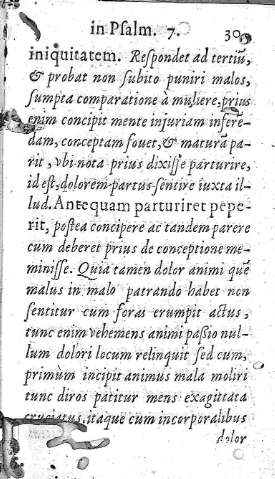 in Psalm. 7. 30
iniquitatem. Respondet ad tertiũ,
& probat non subito puniri malos,
sumpta comparatione à muliere, prius
enim concipit mente injuriam infere-
dam, conceptam fouet, & matura pa-
rit, vbi nota prius dixisse parturire,
id est, dolorem partus sentire iuxta il-
lud. Antequam parturiret pepe-
rit, postea concipere ac tandem parere
cum deberet prius de conceptione me-
minisse. Quia tamen dolor animi quẽ
malus in malo patrando habet non
sentitur cum foras erumpit actus,
tunc enim vehemens animi passio nul-
lum dolori locum relinquit sed cum,
primùm incipit animus mala moliri
tunc diros patitur mens exagitata
cruciatus, itaque cum incorporalibus
dolor